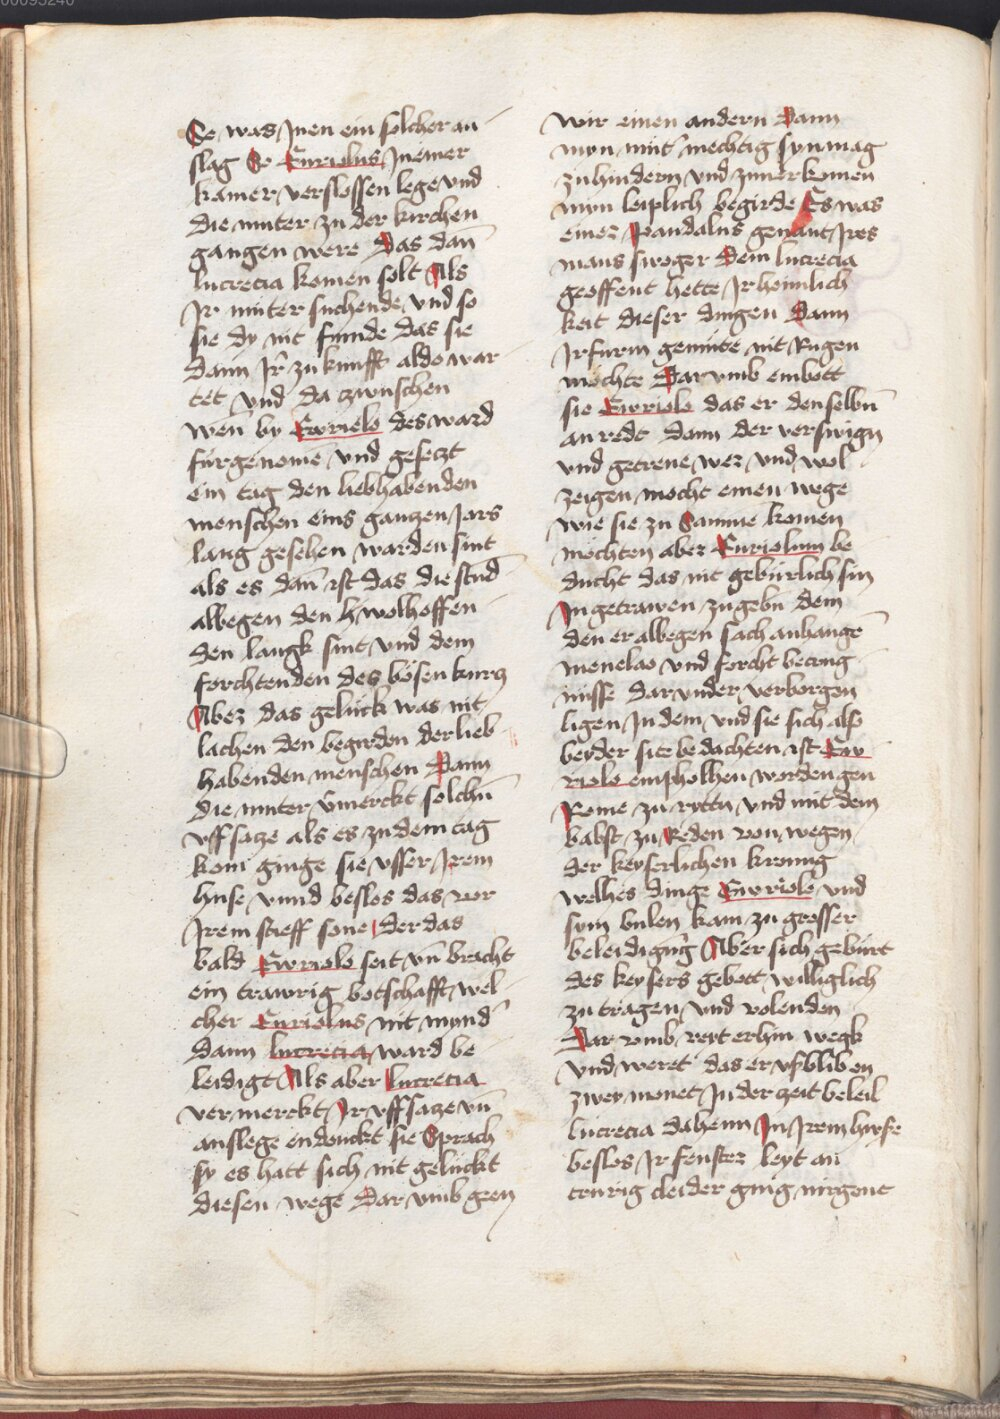 Es was Jnen ein solcher an
slag Er Euriolus Jn einer
kamer verslossen lege vnd
die muter zu der kirchen
gangen were Das dan̄
lucrecia komen solt Als
Jr muter suchende vnd so
sie dy nit funde das sie
dann Jr zukunfft aldo war
tet vnd da zwuschen
wen by Ewriolo des ward
furgenomē vnd gesetzt
ein tag den liebhabenden
menschen eins ganzen Jars
lang gesehen warden sint
als es dan̄ ist das die stūd
alwegen den hwolhoffen
den langk sint vnd dem
forchtenden des bösen kurtz
Aber das geluck was nit
lachen den begirden der lieb
habenden menschen Dann
die muter v̄merckt solchn̄
vffsatze als es zu dem tag
kom ginge sie vsser Jrem
huse vnnd beslos das vor
Jrem stieff sone der das
bald Ewriolo seit vn̄ bracht
ein trawrig botschafft wel
cher Euriolus nit mynd̄
dann lucrecia ward be
leidigt Als aber lucrecia
vermerckt Jr vffsatze vn̄
anslege endeuckt sie Sprach
sy es hatt sich nit geluckt
diesen wege Dar vmb geen
wir einen andern Dann
myn mut mechtig syn mag
zu hindern vnd zuuerkomen
myn leiplich begirde Es was
einer Pandalus genant Jres
mans swoger Dem lucrecia
geoffent hette Jr heimlich
keit dieser dingen Dann
Jr furin gemüte nit Rugen
mochte Dar vmb embott
sie Ewriolo das er denselbn̄
an redt dann der verswign
vnd getreue wer vnd wol
zeigen mocht einen wege
wie sie zu Samme komen
mochten aber Euriolum be
ducht das nit geburlich sin
Jn getrawen zugebn̄ dem
den er alwegen sach anhangē
menelao vnd forcht betrug
musse dar vnder verborgen
ligen Jn dem vnd sie sich also
beyder sitz bedachten ist Ew
riolo empholhen worden gen
Rome zu rytten vnd mit dem
babst zu Reden von wegen
der keyserlichen kronung
welhes dinge Ewriolo vnd
sym bulen kam zu grosser
beleidigūg Aber sich geburt
des keysers gebott williglich
zu tragen vnd volenden
Dar vmb reyt er hin wegk
vnd weret das er vsbliben
zwey monet Jn der zeit beleib
lucrecia daheim Jn Jrem hwse
beslos Jr fenster leyt an
trurig cleider ging nirgent